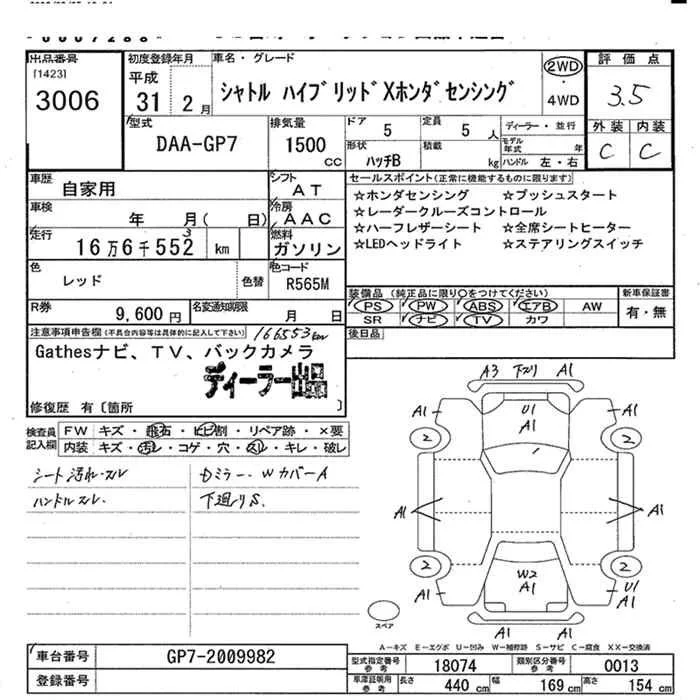 出品番号
[1423]
3006
初度登録年月
平成
31 年 2 月
車名・グレード
シャトル ハイブリッド Xホンダセンシング
2WD
・
4WD
評価点
3.5
外装 内装
C C
型式
DAA-GP7
排気量
1500
CC
ドア
5
定員
5 人
ディーラー・並行
モデル年式 年
形状
ハッチB
積載
kg
ハンドル 左・右
車歴
自家用
シフト
AT
車検
年 月( 日)
冷房
AAC
走行
16万6千552 km
3
燃料
ガソリン
色
レッド
色替
色コード
R565M
R券
9,600 円
名変通知期限
月 日
セールスポイント(正常に機能するものに限ります)
☆ホンダセンシング ☆プッシュスタート
☆レーダークルーズコントロール
☆ハーフレザーシート ☆全席シートヒーター
☆LEDヘッドライト ☆ステアリングスイッチ
装備品 (純正品に限り○をつけてください)
PS PW ABS エアB AW
SR ナビ TV カワ
新車保証書
有・無
後日品
注意事項申告欄(不具合内容等は具体的に記入して下さい)
166553km
Gathesナビ、TV、バックカメラ
ディーラー出品
修復歴 有〔箇所 〕
検査員記入欄
FW キズ・飛石・ヒビ割・リペア跡・×要
内装 キズ・汚レ・コゲ・穴・スレ・キレ・破レ
シート汚れ・スレ
ハンドルスレ.
Dミラー. WカバーA
下廻りS.
A3 下スリ A1
A1 U1 A1
A1
2 2
A1 A1
2 2
W2
A1
A1 U1
A1 A1
A1
スペア
A-キズ E-エグボ U-凹み W-補修跡 S-サビ C-腐食 XX-交換済
車台番号
GP7-2009982
登録番号
型式指定番号
参考
18074
類別区分番号
参考
0013
車庫証明用
参考
長さ
440 cm
幅
169 cm
高さ
154 cm